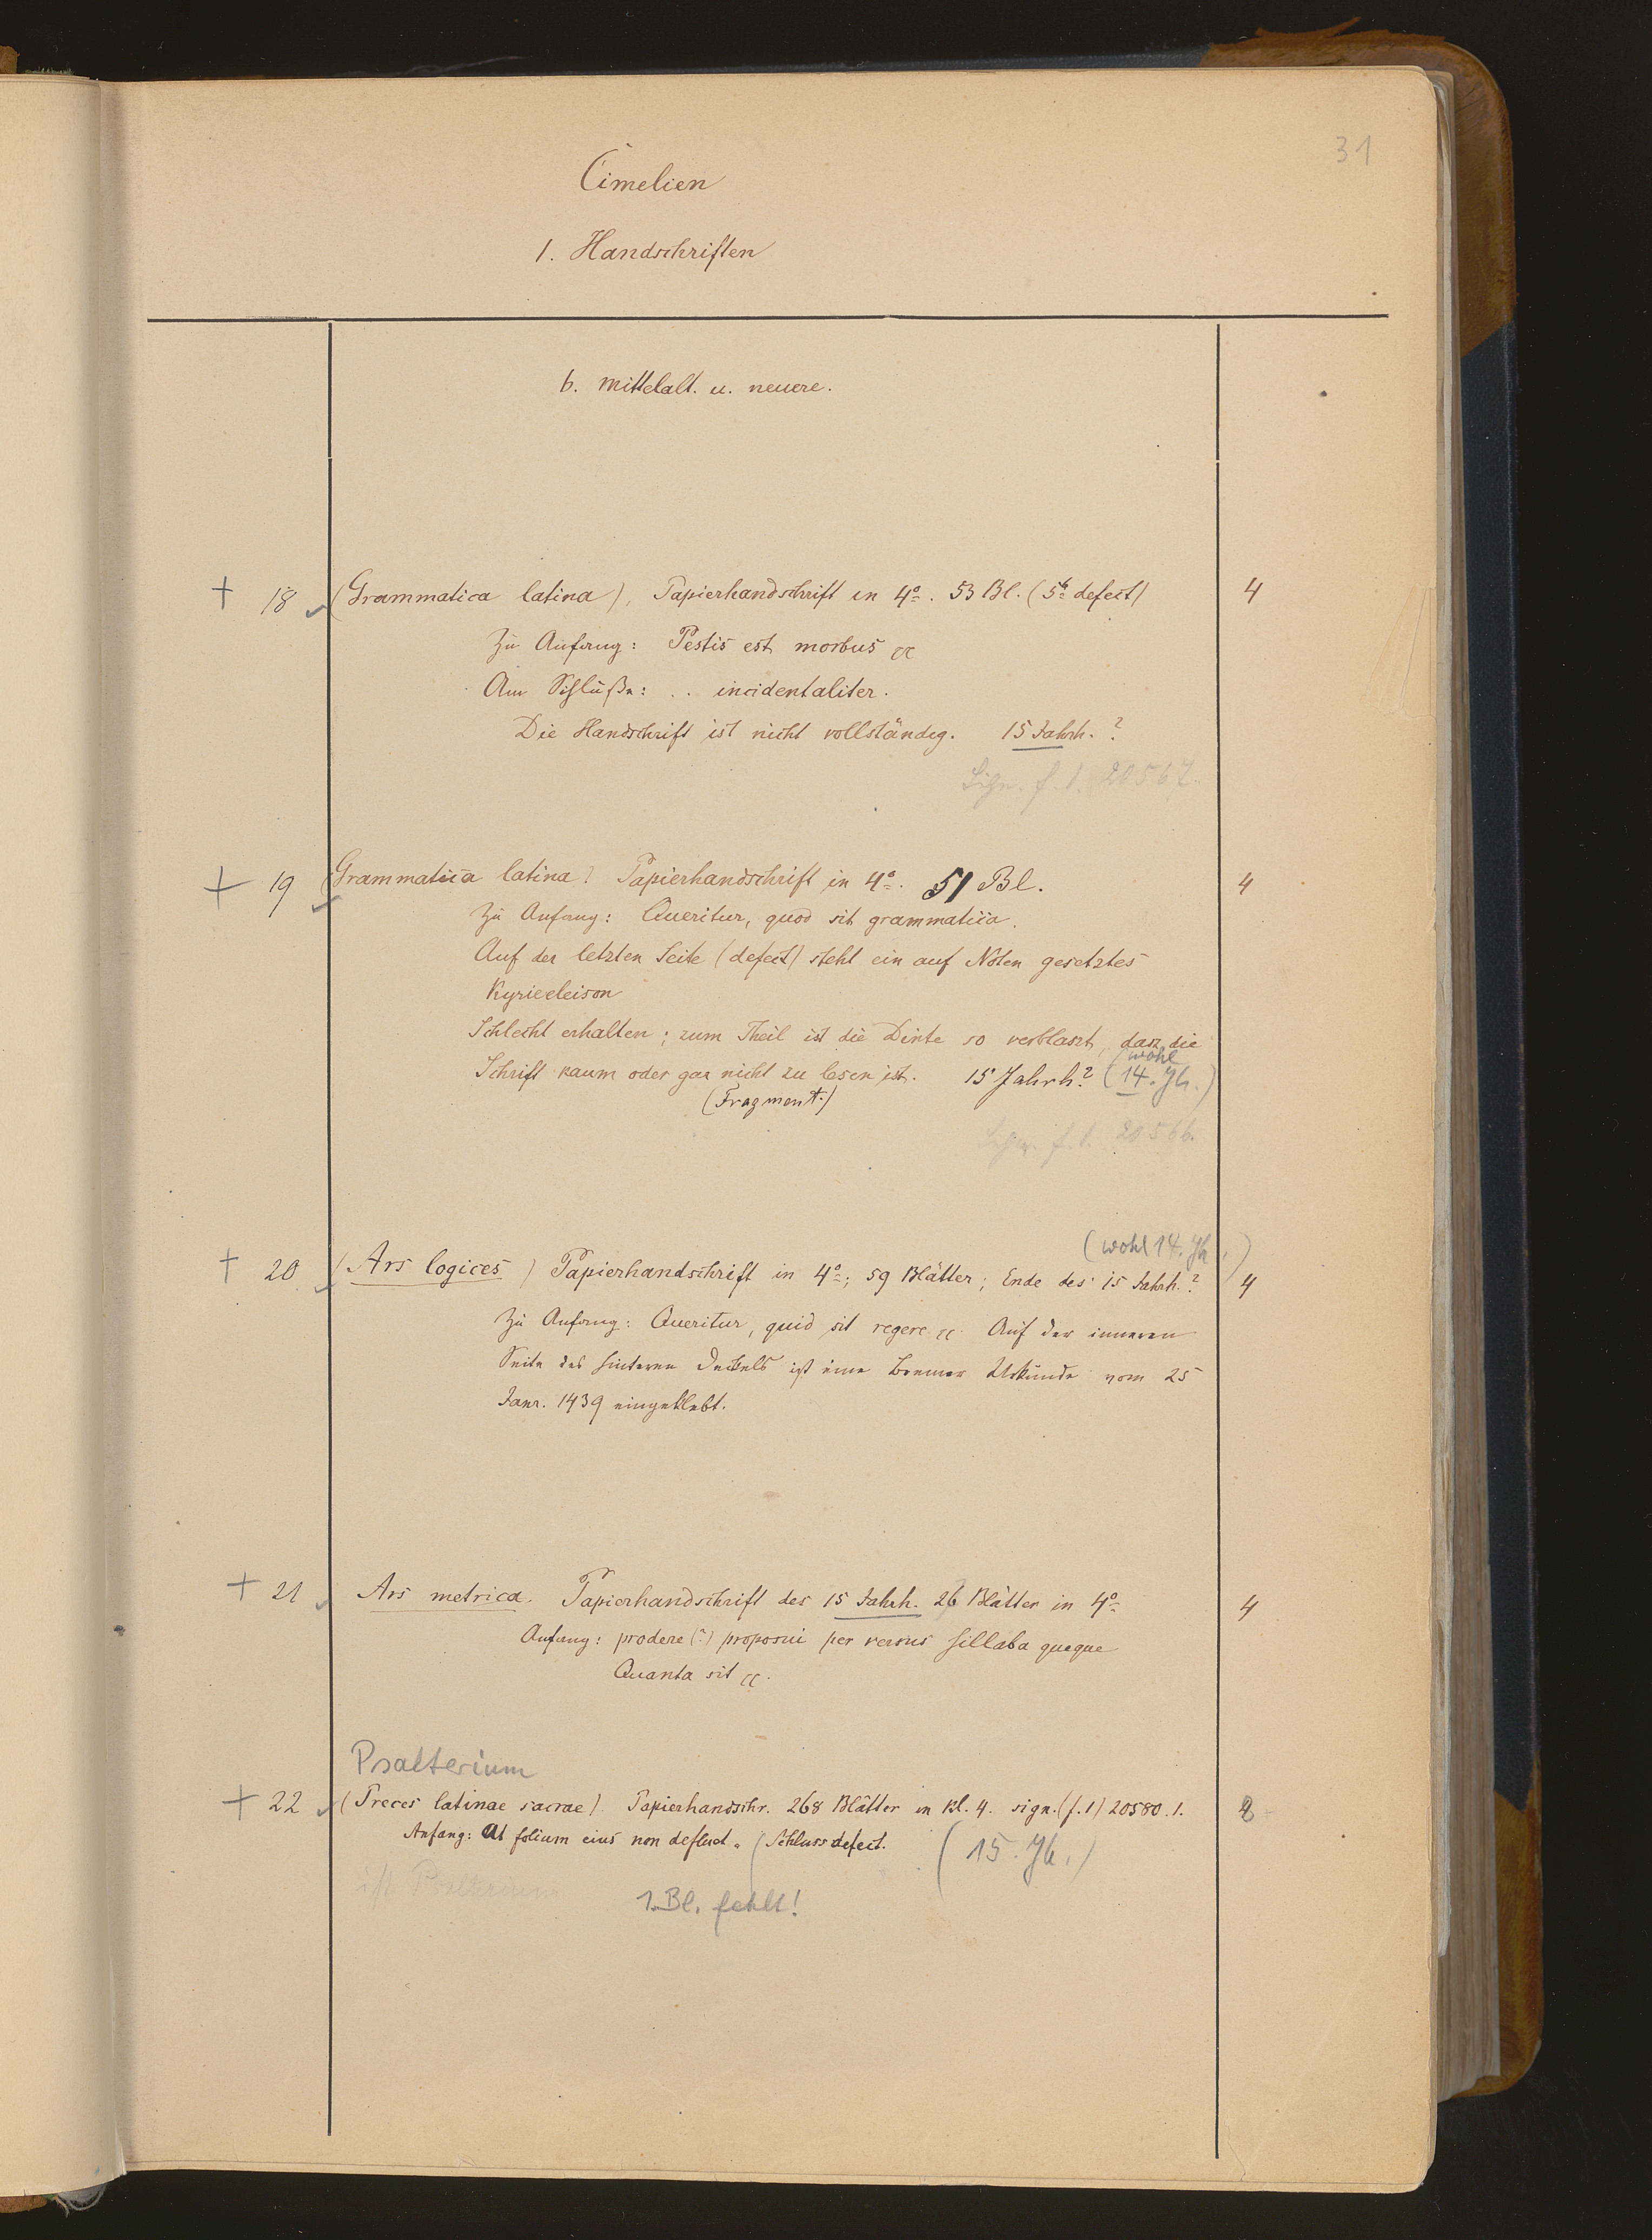 31
Cimelien
1. Handschriften
b. mittelalt. u. neuere.
+ 18 (Grammatica latina), Papierhandschrift in 4º. 53 Bl. (5b defect) 4
Zu Anfang: Pestis est morbus
Am Schluße: .. incidentaliter.
Die Handschrift ist nicht vollständig. 15 Jahrh.?
Sign. f. 1. 20567.
+ 19 (Grammatica latina? Papierhandschrift in 4º. 51 Bl. 4
Zu Anfang: Queritur, quod sit grammatica.
Auf der letzten Seite (defect) steht ein auf Noten gesetztes
Kyrieeleison
Schlecht erhalten; zum Theil ist die Dinte so verblaszt, dasz die
Schrift kaum oder gar nicht zu lesen ist. 15 Jahrh? (wohl 14. Jh.)
(Fragment.)
Sign. f. 1. 20566.
(wohl 14. Jh.)
+ 20 (Ars logices) Papierhandschrift in 4º; 59 Blätter; Ende des 15 Jahrh.? 4
Zu Anfang: Queritur, quid sit regere Auf der inneren
Seite des hinteren Deckels ist eine Bremer Urkunde vom 25
Janr. 1439 eingeklebt.
+ 21 Ars metrica. Papierhandschrift des 15 Jahrh. 26 Blätter in 4º 4
Anfang: prodere (?) proposui per versus sillaba queque
Quanta sit
Psalterium
+ 22 (Preces latinae sacrae). Papierhandschr. 268 Blätter in Kl. 4. sign. (f. 1) 20580.1. 8
Anfang: At folium eius non defluet. (Schluss defect. (15. Jh.)
ist Psalterium
1. Bl. fehlt!